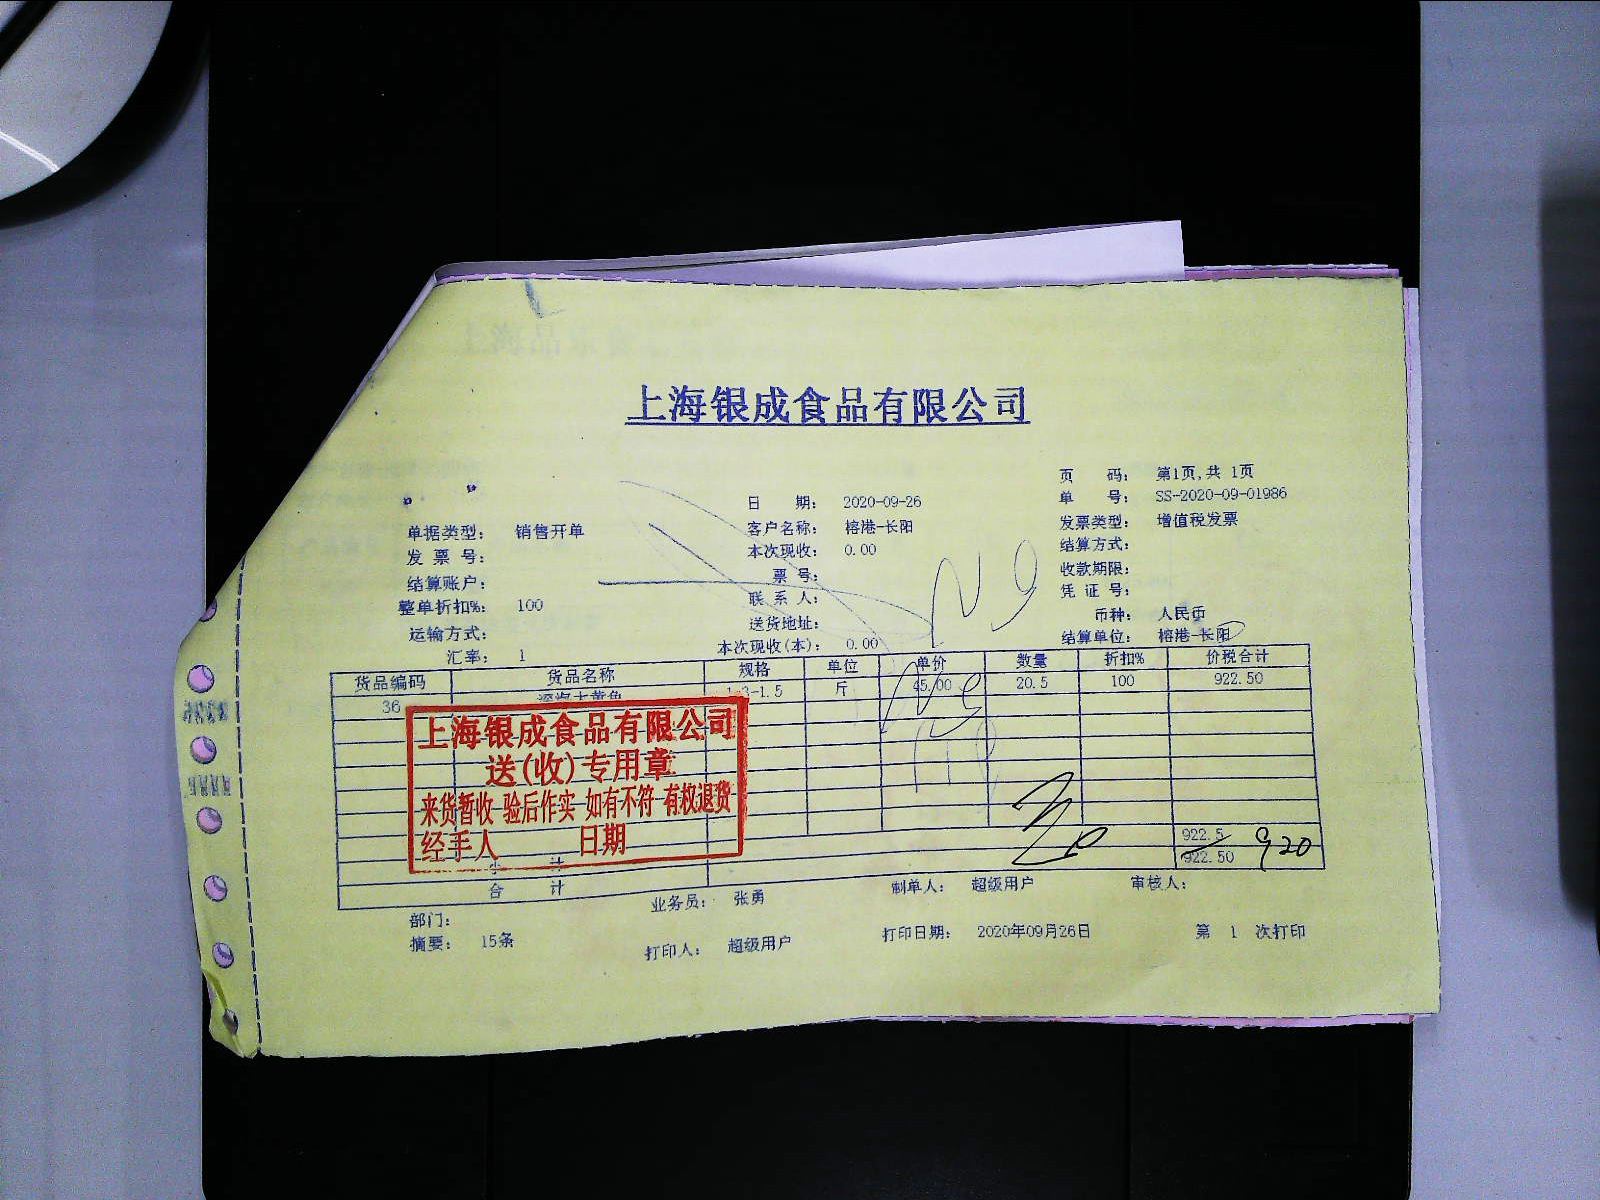 上海银成食品有限公司
页 码： 第1页,共 1页
日 期： 2020-09-26 单 号： SS-2020-09-01986
单据类型： 销售开单 客户名称： 榕港-长阳 发票类型： 增值税发票
发 票 号： 本次现收： 0.00 结算方式：
结算账户： 票 号： 收款期限：
整单折扣%： 100 联 系 人： 凭 证 号：
运输方式： 送货地址： 币种： 人民币
汇率： 1 本次现收(本)： 0.00 结算单位： 榕港-长阳
货品编码 货品名称 规格 单位 单价 数量 折扣% 价税合计
36 深海大黄鱼 1.3-1.5 斤 45.00 20.5 100 922.50
上海银成食品有限公司
送(收)专用章
来货暂收 验后作实 如有不符 有权退货
经手人 日期
小 计 922.5
合 计 922.50 920
部门： 业务员： 张勇 制单人： 超级用户 审核人：
摘要： 15条 打印人： 超级用户 打印日期： 2020年09月26日 第 1 次打印